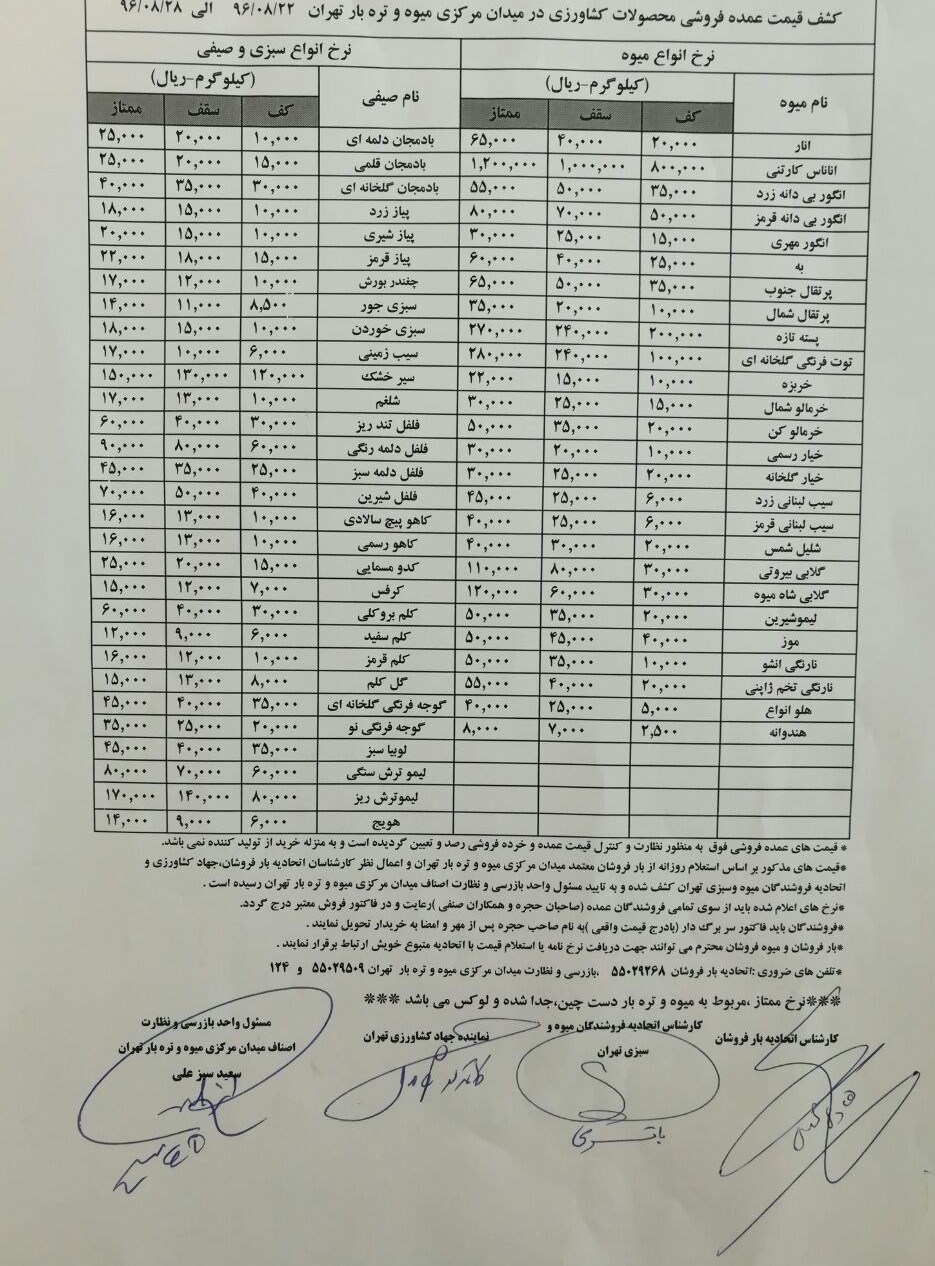 کشف قیمت عمده فروشی محصولات کشاورزی در میدان مرکزی میوه و تره بار تهران ۹۶/۰۸/۲۲ الی ۹۶/۰۸/۲۸
نرخ انواع میوه نرخ انواع سبزی و صیفی
نام میوه (کیلوگرم-ریال) نام صیفی (کیلوگرم-ریال)
کف سقف ممتاز کف سقف ممتاز
انار ۲۰,۰۰۰ ۴۰,۰۰۰ ۶۵,۰۰۰ بادمجان دلمه ای ۱۰,۰۰۰ ۲۰,۰۰۰ ۲۵,۰۰۰
اناناس کارتنی ۸۰۰,۰۰۰ ۱,۰۰۰,۰۰۰ ۱,۲۰۰,۰۰۰ بادمجان قلمی ۱۵,۰۰۰ ۲۰,۰۰۰ ۲۵,۰۰۰
انگور بی دانه زرد ۳۵,۰۰۰ ۵۰,۰۰۰ ۵۵,۰۰۰ بادمجان گلخانه ای ۳۰,۰۰۰ ۳۵,۰۰۰ ۴۰,۰۰۰
انگور بی دانه قرمز ۵۰,۰۰۰ ۷۰,۰۰۰ ۸۰,۰۰۰ پیاز زرد ۱۰,۰۰۰ ۱۵,۰۰۰ ۱۸,۰۰۰
انگور مهری ۱۵,۰۰۰ ۲۵,۰۰۰ ۳۰,۰۰۰ پیاز شیری ۱۰,۰۰۰ ۱۵,۰۰۰ ۲۰,۰۰۰
به ۲۵,۰۰۰ ۴۰,۰۰۰ ۶۰,۰۰۰ پیاز قرمز ۱۵,۰۰۰ ۱۸,۰۰۰ ۲۲,۰۰۰
پرتقال جنوب ۳۵,۰۰۰ ۵۰,۰۰۰ ۶۵,۰۰۰ چغندر بورش ۱۰,۰۰۰ ۱۲,۰۰۰ ۱۷,۰۰۰
پرتقال شمال ۱۰,۰۰۰ ۲۰,۰۰۰ ۳۵,۰۰۰ سبزی جور ۸,۵۰۰ ۱۱,۰۰۰ ۱۴,۰۰۰
پسته تازه ۲۰۰,۰۰۰ ۲۴۰,۰۰۰ ۲۷۰,۰۰۰ سبزی خوردن ۱۰,۰۰۰ ۱۵,۰۰۰ ۱۸,۰۰۰
توت فرنگی گلخانه ای ۱۰۰,۰۰۰ ۲۴۰,۰۰۰ ۲۸۰,۰۰۰ سیب زمینی ۶,۰۰۰ ۱۰,۰۰۰ ۱۷,۰۰۰
خربزه ۱۰,۰۰۰ ۱۵,۰۰۰ ۲۲,۰۰۰ سیر خشک ۱۲۰,۰۰۰ ۱۳۰,۰۰۰ ۱۵۰,۰۰۰
خرمالو شمال ۱۵,۰۰۰ ۲۵,۰۰۰ ۳۰,۰۰۰ شلغم ۱۰,۰۰۰ ۱۳,۰۰۰ ۱۷,۰۰۰
خرمالو کن ۲۰,۰۰۰ ۳۵,۰۰۰ ۵۰,۰۰۰ فلفل تند ریز ۳۰,۰۰۰ ۴۰,۰۰۰ ۶۰,۰۰۰
خیار رسمی ۱۰,۰۰۰ ۲۰,۰۰۰ ۳۰,۰۰۰ فلفل دلمه رنگی ۶۰,۰۰۰ ۸۰,۰۰۰ ۹۰,۰۰۰
خیار گلخانه ۲۰,۰۰۰ ۲۵,۰۰۰ ۳۰,۰۰۰ فلفل دلمه سبز ۲۵,۰۰۰ ۳۵,۰۰۰ ۴۵,۰۰۰
سیب لبنانی زرد ۶,۰۰۰ ۲۵,۰۰۰ ۴۵,۰۰۰ فلفل شیرین ۴۰,۰۰۰ ۵۰,۰۰۰ ۷۰,۰۰۰
سیب لبنانی قرمز ۶,۰۰۰ ۲۵,۰۰۰ ۴۰,۰۰۰ کاهو پیچ سالادی ۱۰,۰۰۰ ۱۳,۰۰۰ ۱۶,۰۰۰
شلیل شمس ۲۰,۰۰۰ ۳۰,۰۰۰ ۴۰,۰۰۰ کاهو رسمی ۱۰,۰۰۰ ۱۳,۰۰۰ ۱۶,۰۰۰
گلابی بیروتی ۳۰,۰۰۰ ۸۰,۰۰۰ ۱۱۰,۰۰۰ کدو مسمایی ۱۵,۰۰۰ ۲۰,۰۰۰ ۲۵,۰۰۰
گلابی شاه میوه ۳۰,۰۰۰ ۶۰,۰۰۰ ۱۲۰,۰۰۰ کرفس ۷,۰۰۰ ۱۲,۰۰۰ ۱۵,۰۰۰
لیموشیرین ۲۰,۰۰۰ ۳۵,۰۰۰ ۵۰,۰۰۰ کلم بروکلی ۳۰,۰۰۰ ۴۰,۰۰۰ ۶۰,۰۰۰
موز ۴۰,۰۰۰ ۴۵,۰۰۰ ۵۰,۰۰۰ کلم سفید ۶,۰۰۰ ۹,۰۰۰ ۱۲,۰۰۰
نارنگی انشو ۱۰,۰۰۰ ۳۵,۰۰۰ ۵۰,۰۰۰ کلم قرمز ۱۰,۰۰۰ ۱۲,۰۰۰ ۱۶,۰۰۰
نارنگی تخم ژاپنی ۲۰,۰۰۰ ۴۰,۰۰۰ ۵۵,۰۰۰ گل کلم ۸,۰۰۰ ۱۳,۰۰۰ ۱۵,۰۰۰
هلو انواع ۵,۰۰۰ ۲۵,۰۰۰ ۴۰,۰۰۰ گوجه فرنگی گلخانه ای ۳۵,۰۰۰ ۴۰,۰۰۰ ۴۵,۰۰۰
هندوانه ۲,۵۰۰ ۷,۰۰۰ ۸,۰۰۰ گوجه فرنگی نو ۲۰,۰۰۰ ۲۵,۰۰۰ ۳۵,۰۰۰
لوبیا سبز ۳۵,۰۰۰ ۴۰,۰۰۰ ۴۵,۰۰۰
لیمو ترش سنگی ۶۰,۰۰۰ ۷۰,۰۰۰ ۸۰,۰۰۰
لیموترش ریز ۸۰,۰۰۰ ۱۴۰,۰۰۰ ۱۷۰,۰۰۰
هویج ۶,۰۰۰ ۹,۰۰۰ ۱۴,۰۰۰
* قیمت های عمده فروشی فوق به منظور نظارت و کنترل قیمت عمده و خرده فروشی رصد و تعیین گردیده است و به منزله خرید از تولید کننده نمی باشد.
*قیمت های مذکور بر اساس استعلام روزانه از بار فروشان معتمد میدان مرکزی میوه و تره بار تهران و اعمال نظر کارشناسان اتحادیه بار فروشان،جهاد کشاورزی و
اتحادیه فروشندگان میوه وسبزی تهران کشف شده و به تایید مسئول واحد بازرسی و نظارت اصناف میدان مرکزی میوه و تره بار تهران رسیده است .
*نرخ های اعلام شده باید از سوی تمامی فروشندگان عمده (صاحبان حجره و همکاران صنفی )رعایت و در فاکتور فروش معتبر درج گردد.
*فروشندگان باید فاکتور سر برگ دار (بادرج قیمت واقعی )به نام صاحب حجره پس از مهر و امضا به خریدار تحویل نمایند .
*بار فروشان و میوه فروشان محترم می توانند جهت دریافت نرخ نامه یا استعلام قیمت با اتحادیه متبوع خویش ارتباط برقرار نمایند .
*تلفن های ضروری :اتحادیه بار فروشان ۵۵۰۲۹۲۶۸ ،بازرسی و نظارت میدان مرکزی میوه و تره بار تهران ۵۵۰۲۹۵۰۹ و ۱۲۴
***نرخ ممتاز ،مربوط به میوه و تره بار دست چین،جدا شده و لوکس می باشد ***
کارشناس اتحادیه بار فروشان
کارشناس اتحادیه فروشندگان میوه و
سبزی تهران
نماینده جهاد کشاورزی تهران
مسئول واحد بازرسی و نظارت
اصناف میدان مرکزی میوه و تره بار تهران
سعید سبز علی